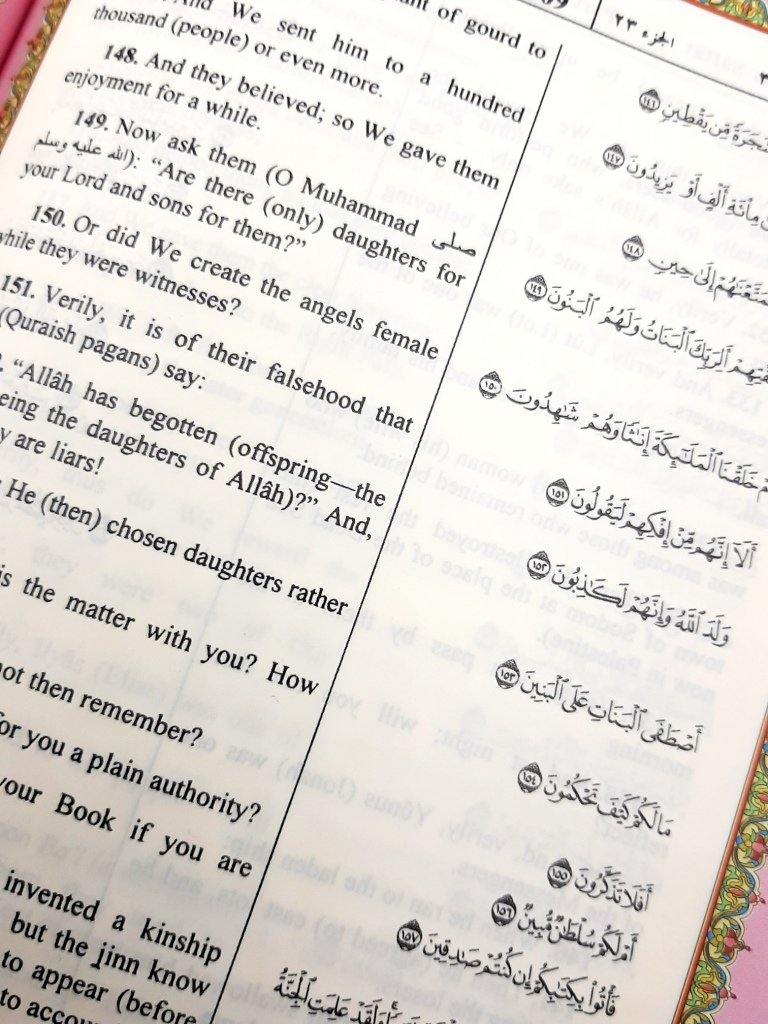 الجزء ٢٣
of gourd to
And We sent him to a hundred
thousand (people) or even more.
148. And they believed; so We gave them
enjoyment for a while.
149. Now ask them (O Muhammad صلى
الله عليه وسلم): “Are there (only) daughters for
your Lord and sons for them?”
150. Or did We create the angels female
while they were witnesses?
151. Verily, it is of their falsehood that
(Quraish pagans) say:
“Allâh has begotten (offspring—the
being the daughters of Allâh)?” And,
are liars!
He (then) chosen daughters rather
is the matter with you? How
not then remember?
for you a plain authority?
your Book if you are
invented a kinship
but the jinn know
to appear (before
to
مِّن يَقْطِينٍ ١٤٦
مِاْئَةِ أَلْفٍ أَوْ يَزِيدُونَ ١٤٧
إِلَىٰ حِينٍ ١٤٨
أَلِرَبِّكَ ٱلْبَنَاتُ وَلَهُمُ ٱلْبَنُونَ ١٤٩
خَلَقْنَا ٱلْمَلَٰٓئِكَةَ إِنَٰثًا وَهُمْ شَٰهِدُونَ ١٥٠
أَلَآ إِنَّهُم مِّنْ إِفْكِهِمْ لَيَقُولُونَ ١٥١
وَلَدَ ٱللَّهُ وَإِنَّهُمْ لَكَٰذِبُونَ ١٥٢
أَصْطَفَى ٱلْبَنَاتِ عَلَى ٱلْبَنِينَ ١٥٣
مَا لَكُمْ كَيْفَ تَحْكُمُونَ ١٥٤
أَفَلَا تَذَكَّرُونَ ١٥٥
أَمْ لَكُمْ سُلْطَٰنٌ مُّبِينٌ ١٥٦
فَأْتُوا۟ بِكِتَٰبِكُمْ إِن كُنتُمْ صَٰدِقِينَ ١٥٧
وَلَقَدْ عَلِمَتِ ٱلْجِنَّةُ